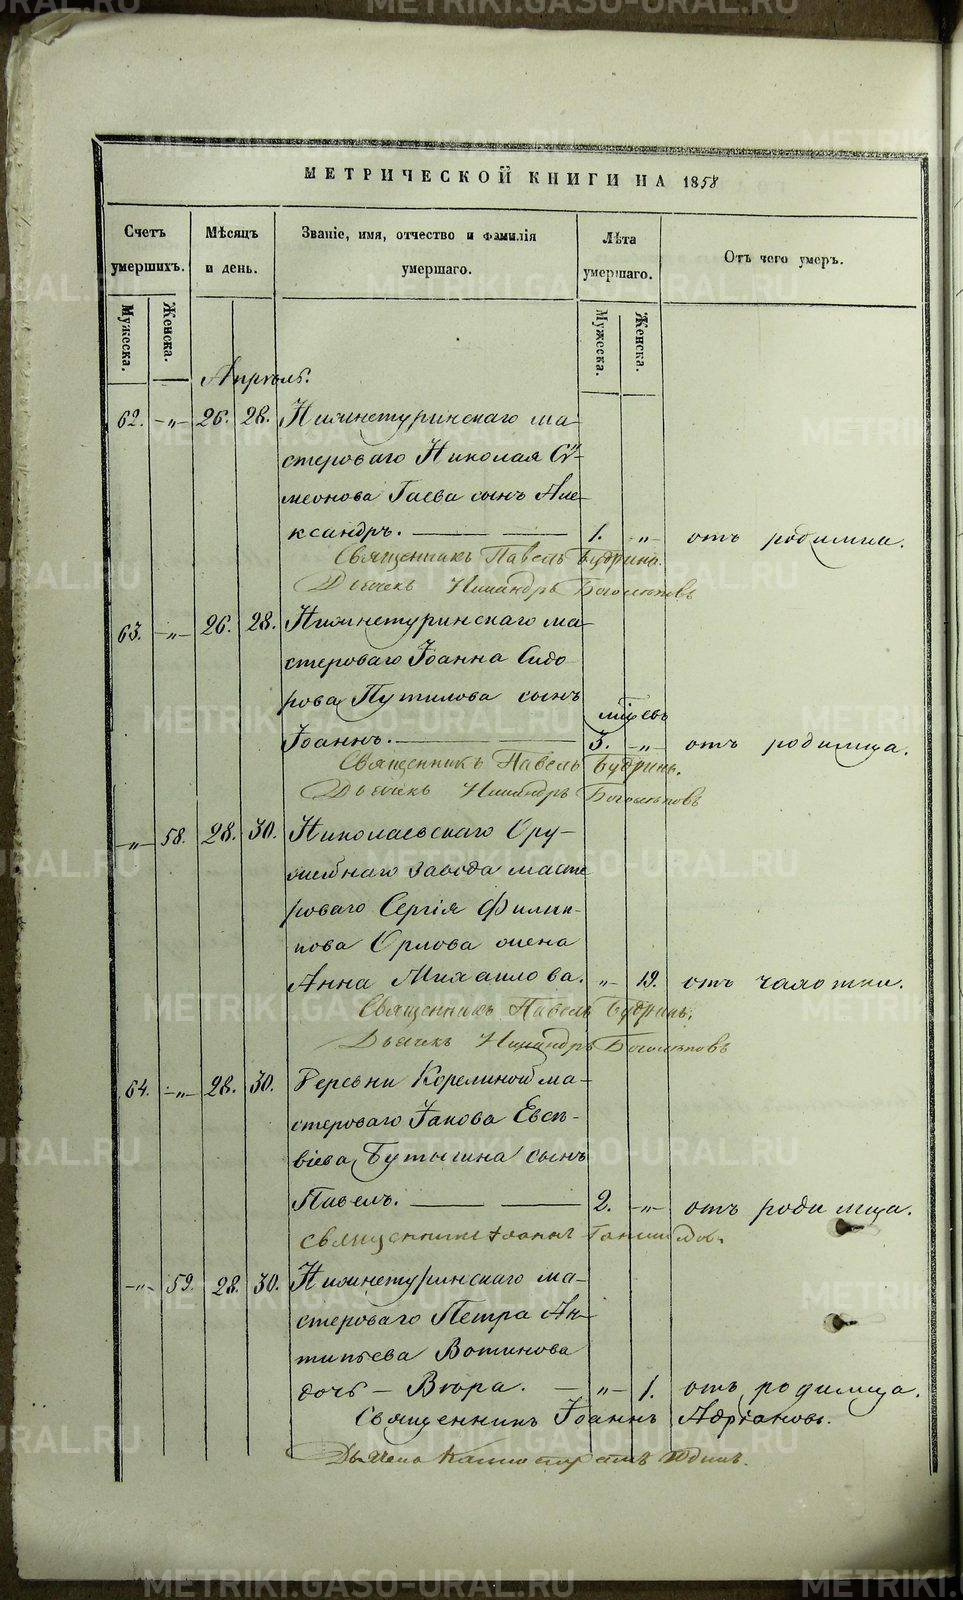 МЕТРИЧЕСКОЙ КНИГИ НА 1858
Счетъ умершихъ.
Мѣсяцъ и день.
Званіе, имя, отчество и фамилія умершаго.
Лѣта умершаго.
Отъ чего умеръ.
Мужеска.
Женска.
Мужеска.
Женска.
Апрѣль.
62. -„- 26. 28. Нижнетуринскаго ма-
стероваго Николая Си-
меонова Гаева сынъ Але-
ксандръ. 1. -„- отъ родимца.
Священникъ Павелъ Будринъ.
Дьячекъ Никандръ Боголѣповъ
63. -„- 26. 28. Нижнетуринскаго ма-
стероваго Іоанна Сидо
рова Путилова сынъ
мѣсяцевъ
Іоаннъ. 3. -„- отъ родимца.
Священникъ Павелъ Будринъ.
Дьячекъ Никандръ Боголѣповъ
-„- 58. 28. 30. Николаевскаго Ору-
жейнаго завода масте
роваго Сергія Филип-
пова Орлова жена
Анна Михаилова. „- 19. отъ чахотки.
Священникъ Павелъ Будринъ.
Дьячекъ Никандръ Боголѣповъ
64. -„- 28. 30. Деревни Корелиной ма-
стероваго Іакова Евсѣ-
віева Бутыгина сынъ
Павелъ. 2. -„- отъ родимца.
Священникъ Іоаннъ
-„- 59. 28. 30. Нижнетуринскаго ма-
стероваго Петра Ан-
типьева Вотинова
дочь - Вѣра. -„- 1. отъ родимца.
Священникъ Іоаннъ Адріановъ.
Дьячекъ Юдинъ.
METRIKI.GASO-URAL.RU